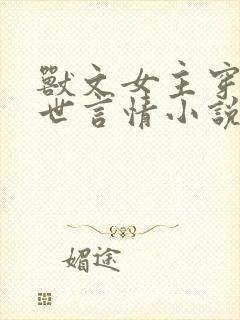 獸文女主穿
世言情小說
媚途